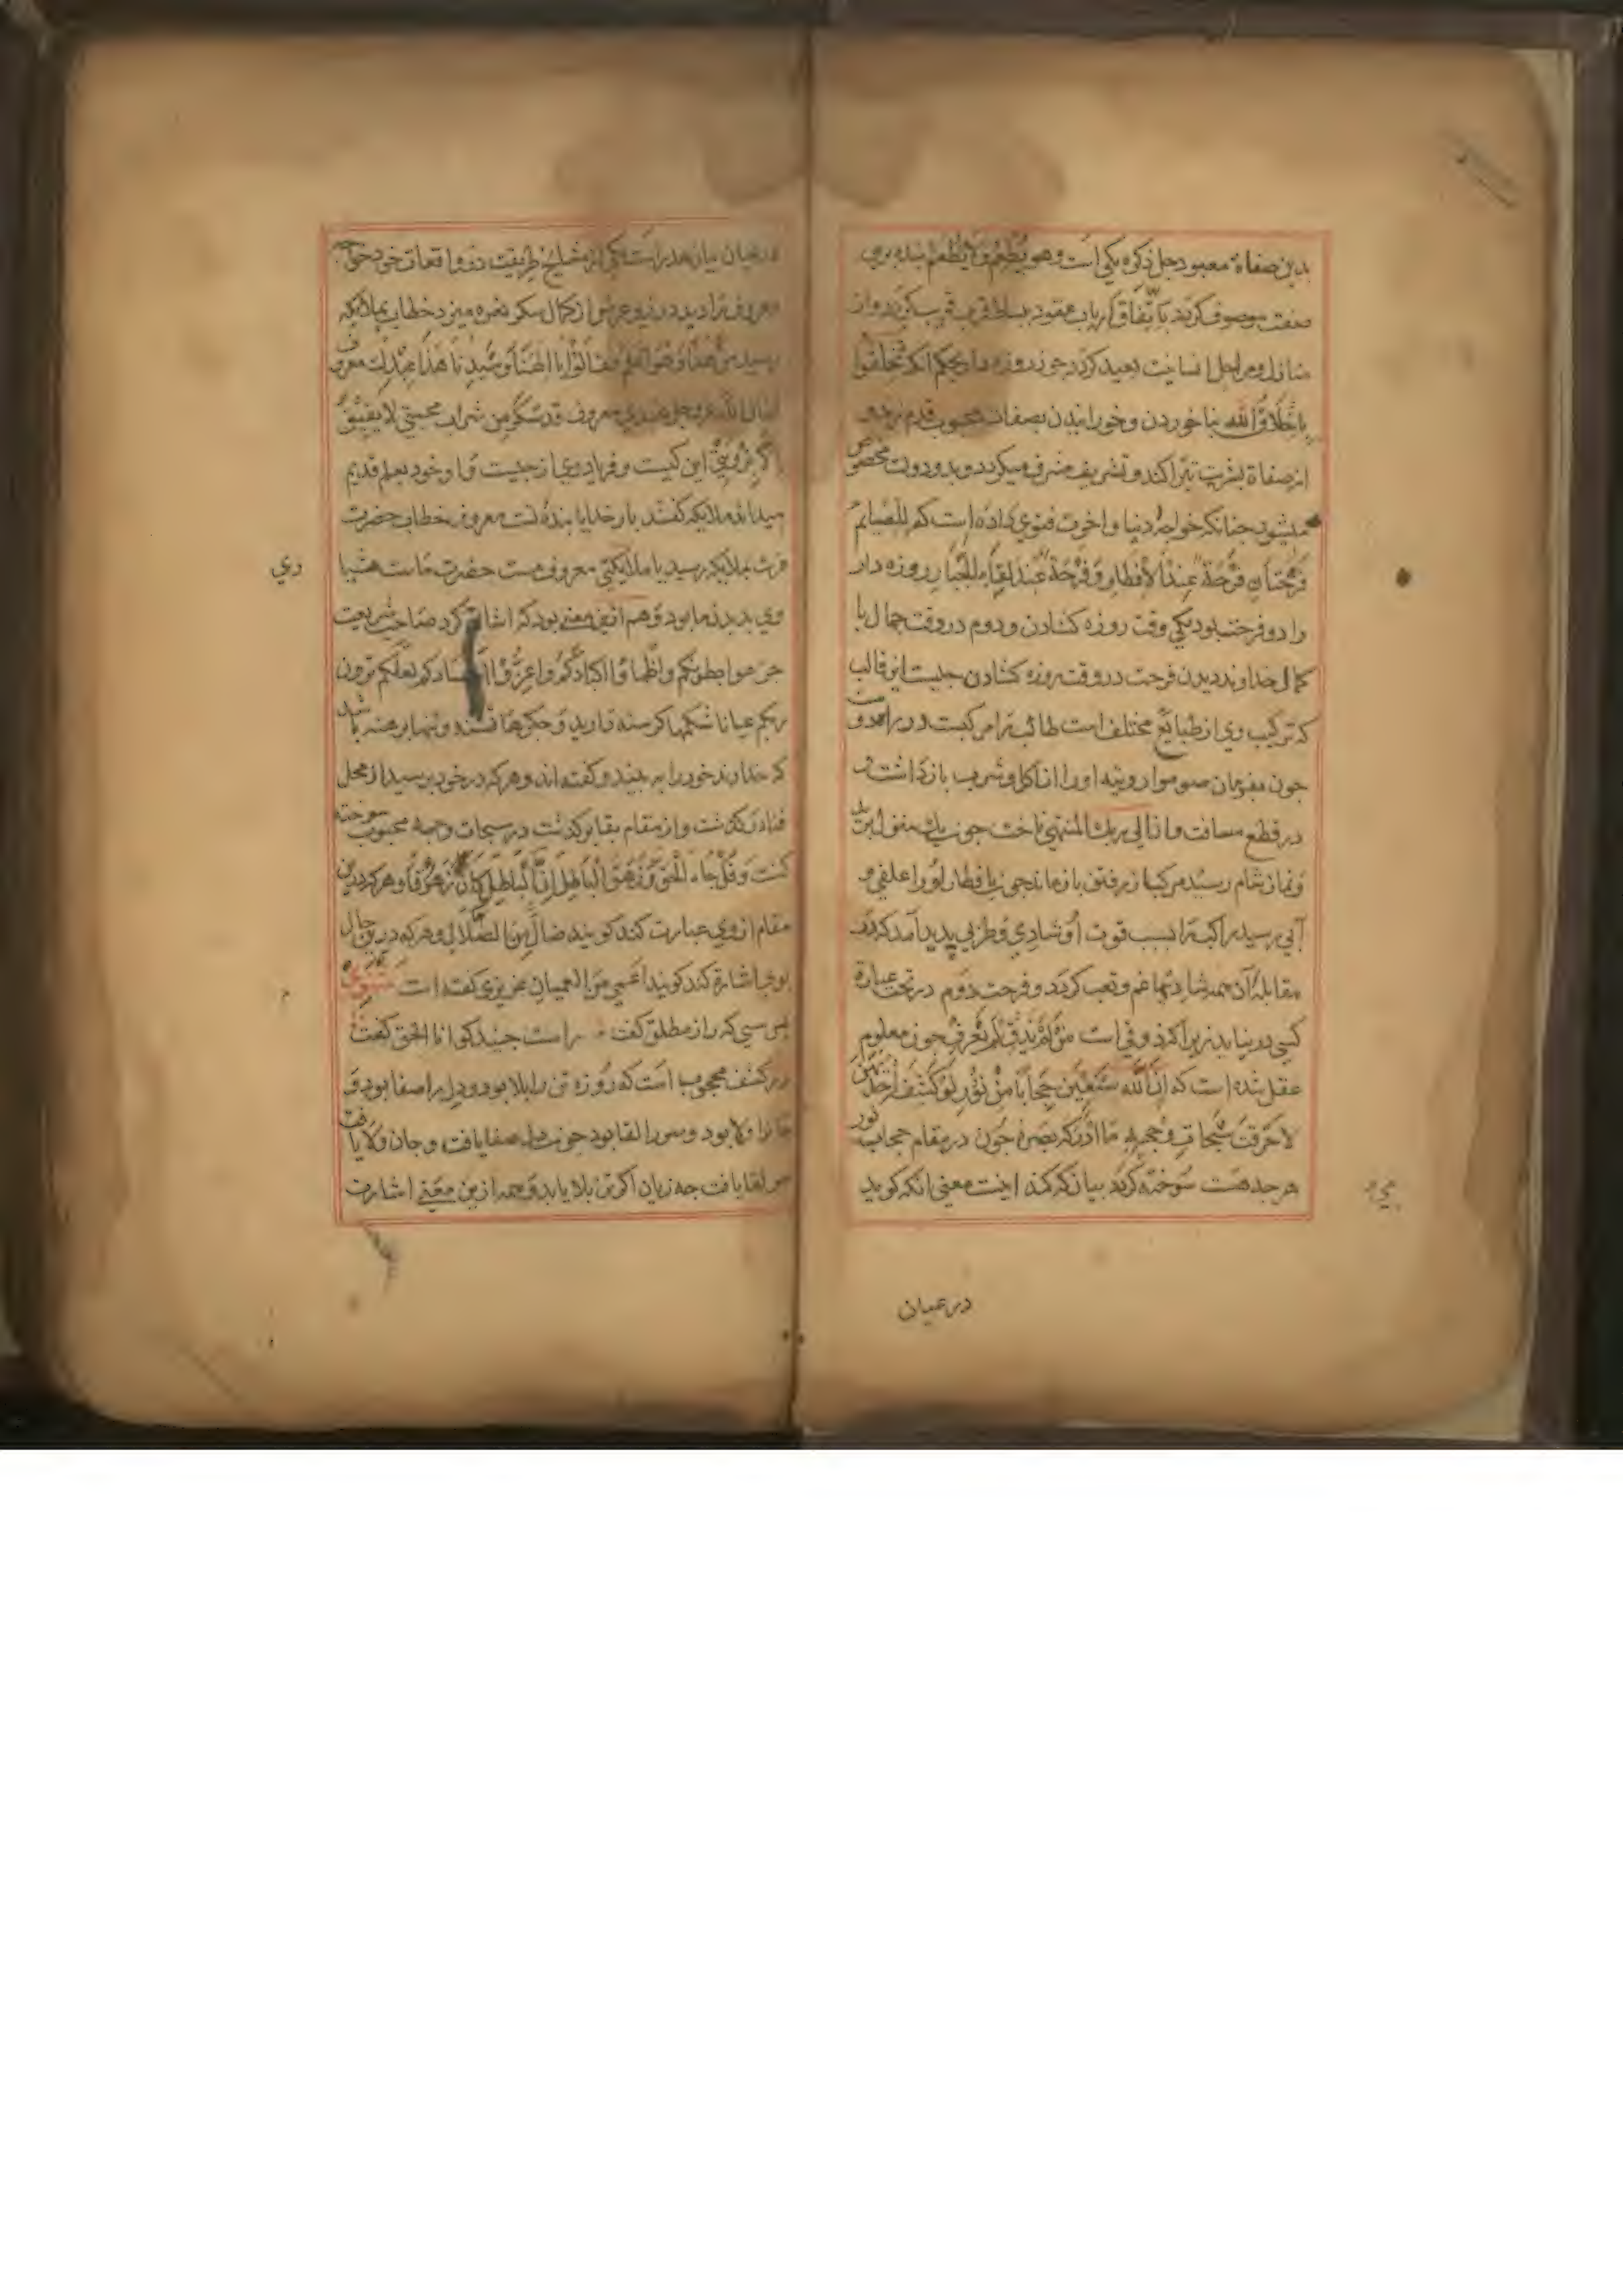 بدین صفاة معبود جل ذکره یکی است وهو یُطْعِمُ وَلَا یُطْعَمْ بنده برین
صفت موصوف کردد باتفاق ارباب عقود بساط قرب قریب کردد واز
منازل ومراحل انسانیت بعید کردد جون روزه دار بحکم انکه تخلقوا
بِاَخْلَاقِ اللّٰه بنا خوردن وخورانیدن بصفات محبوب قدم نهد و
از صفاة بشریت تبرا کند وتشریف مشرف میکردد وبدو دولت مخصوص
میشود جنانکه خواجهٔ دنیا واخرت فتوی داده است که للصّایم
فَرْحَتَانِ فَرْحَة عِنْدَ الْأِفْطَارِ وَفَرْحَة عِنْدَ لِقَاءِ الْجَبَّارِ روزه دار
را دو فرحت بود یکی وقت روزه کشادن ودوم در وقت جمال با
کمال خداوند دیدن فرحت در وقت روزه کشادن جیست این قالب
که ترکیب وی از طبایع مختلف است طالب را مرکبست در راه
جون بفرمان صوموا لرویته اورا از اکل وشرب بازداشت و
در قطع مسافت وان الی ربک المنتهی تاخت جون یک منزل
ونماز شام رسید مرکب از رفتن بازماند جون بافطار اورا علفی و
آبی رسید راکب را بسبب قوت او شادی وطربی پدید آمد که در
مقابلهٔ آن همه شادیها غم وتعب کردد وفرحت دوم در تحت عبارة
کسی در نیاید زیرا که ذوقی است مَنْ لَمْ یَذُقْ لَمْ یَعْرِفْ جون معلوم
عقل شده است که اِنَّ اللّٰه سَبْعِینَ حِجَابًا مِنْ نُورٍ لَوْ کَشَفَ
لاحرقت سُبُحَات وجهه ما ادرکه بصره جون در مقام حجاب نور
هرجه هست سوخته کردد بیان که کند اینست معنی انکه کوید
در عیان
در عیان بیان هدر است یکی از مشایخ طریقت در واقعات خود خواجه
معروف را دید در زیر عرش از کمال سکر نعره میزد خطاب بملایکه
رسید من هذا وهو اعلم فقالوا یا الهنا وسیدنا هذا عبدک معروف
فقال اللّٰه عزوجل عبدی معروف قد سکر من شراب محبتی لا یفیق
این کیست وفریاد وی از جیست واو خود بعلم قدیم
میداند ملایکه کفتند بار خدایا بندهٔ تست معروف خطاب حضرت
عزت بملایکه رسید یا ملایکتی معروف مست حضرت ماست هشیاری
ری
وی بدیدن ما بود وهم ازین معنی بود که اشارت کرد صاحب شریعت
جوعوا بطونکم واظماوا اکبادکم واعروا اجسادکم لعلکم ترون
ربکم عیانا شکمها کرسنه دارید وجکرها تشنه وتنها برهنه باشد
که خداوند خود را به بینید وکفته اند وهر که در خود برسید از محل
فنا در کذشت واز مقام بقا برکذشت در سبحات وجه محبوب سوخته
کشت وَقُلْ جَاءَ الْحَقّ وَزَهَقَ الْبَاطِلُ اِنَّ الْبَاطِلَ کَانَ زَهُوقًا وهر که درین
مقام از وی عبارت کند کویند ضالّ من الضلال وهر که درین حال
بوی اشارة کند کویند اعمی من العمیان عزیزی کفته است مثنوی
پس کسی که راز مطلق کفت راست جنبید کو انا الحق کفت
در کشف محجوب است که روزه تن را بلا بود ودل را صفا بود و
جان را ولا بود وسر را لقا بود جون دل صفا یافت وجان ولا یافت
سر لقا یافت جه زیان اکر تن بلا یابد وهم ازین معنی اشارت